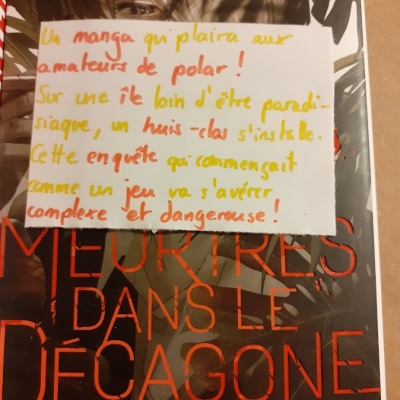 Un manga qui plaira aux
amateurs de polar !
Sur une île loin d'être paradi-
siaque, un huis-clos s'installe.
Cette enquête qui commençait
comme un jeu va s'avérer
complexe et dangereuse !
MEURTRES
DANS LE
DÉCAGONE